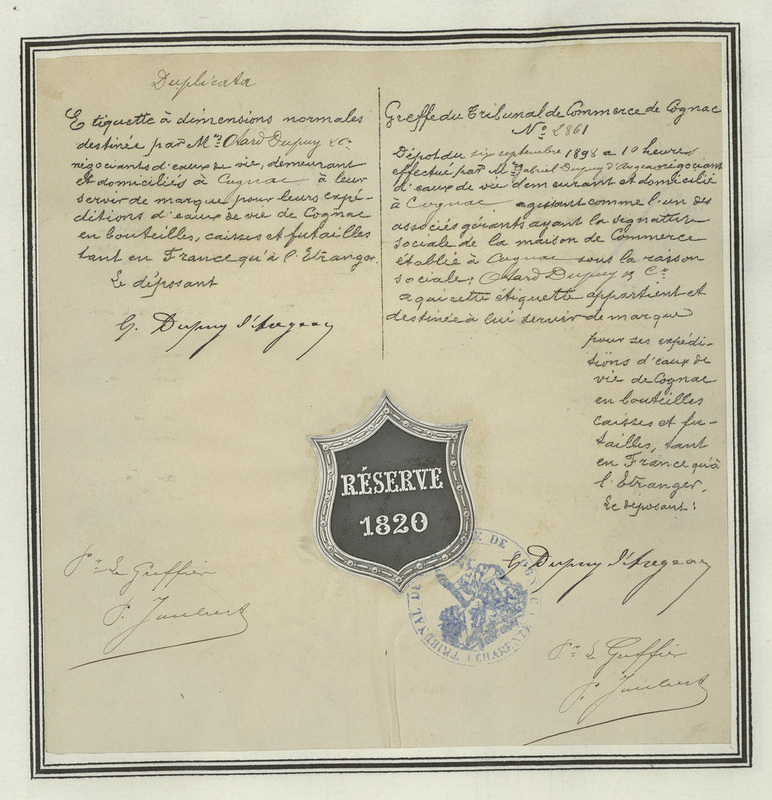 Duplicata
Etiquette à dimensions normales
destinée par Mrs Otard Dupuy & Co
négociants d'eaux de vie, demeurant
et domiciliés à Cognac à leur
servir de marque pour leurs expé-
ditions d'eaux de vie de Cognac
en bouteilles, caisses et futailles
tant en France qu'à l'Etranger.
Le déposant
G. Dupuy d'Angeac
Greffe du Tribunal de Commerce de Cognac
No 2861
Dépot du six septembre 1898 a 10 heures
effectué par Mr Gabriel Dupuy d'Angeac négociant
d'eaux de vie demeurant et domicilié
à Cognac agissant comme l'un des
associés gérants ayant la signature
sociale de la maison de Commerce
établie à Cognac sous la raison
sociale; Otard Dupuy & Co
a qui cette étiquette appartient et
destinée à lui servir de marque
pour ses expédi-
tions d'eaux de
vie de Cognac
en bouteilles
caisses et fu-
tailles, tant
en France qu'à
l'Etranger.
Le déposant:
G. Dupuy d'Angeac
RÉSERVE
1820
Pr Le Greffier
P. Joubert
TRIBUNAL DE COMMERCE DE COGNAC (CHARENTE)
Pr Le Greffier
P. Joubert